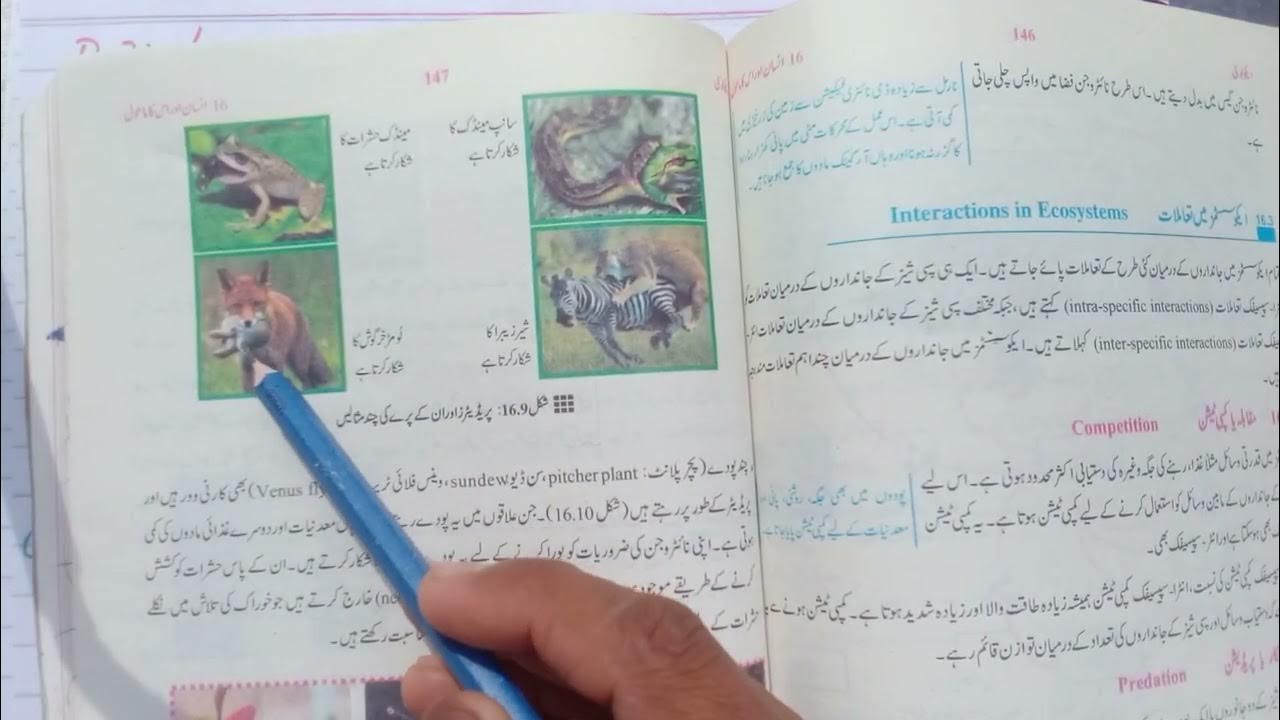 146
16 انسان اور اس کا ماحول
نائٹروجن گیس میں بدل دیتے ہیں۔ اس طرح نائٹروجن فضا میں واپس چلی جاتی
ہے۔
نارمل سے زیادہ ڈی نائٹریفیکیشن سے زمین کی زرخیزی میں
کمی آتی ہے۔ اس عمل کے محرکات مٹی میں پانی کھڑا رہنا، ہوا
کا گزر نہ ہونا اور وہاں آرگینک مادوں کا جمع ہو جانا ہیں۔
16.3 ایکوسسٹمز میں تعاملات Interactions in Ecosystems
تمام ایکوسسٹمز میں جانداروں کے درمیان کئی طرح کے تعاملات پائے جاتے ہیں۔ ایک ہی سپی شیز کے جانداروں کے درمیان تعاملات کو
سپیسیفک تعاملات (intra-specific interactions) کہتے ہیں، جبکہ مختلف سپی شیز کے جانداروں کے درمیان تعاملات انٹر۔
تعاملات (inter-specific interactions) کہلاتے ہیں۔ ایکوسسٹمز میں جانداروں کے درمیان چند اہم تعاملات مندرجہ
ہیں۔
مقابلہ یا کمپی ٹیشن Competition
میں قدرتی وسائل مثلاً غذا، رہنے کی جگہ وغیرہ کی دستیابی اکثر محدود ہوتی ہے۔ اس لیے
جانداروں کے مابین وسائل کو استعمال کرنے کے لیے کمپی ٹیشن ہوتا ہے۔ یہ کمپی ٹیشن
بھی ہو سکتا ہے اور انٹر۔ سپیسیفک بھی۔
پودوں میں بھی جگہ، روشنی، پانی اور
معدنیات کے لیے کمپی ٹیشن پایا جاتا ہے۔
سپیسیفک کمپی ٹیشن کی نسبت، انٹرا۔ سپیسیفک کمپی ٹیشن ہمیشہ زیادہ طاقت والا اور زیادہ شدید ہوتا ہے۔ کمپی ٹیشن ہونے سے
کہ دستیاب وسائل اور سپی شیز کے جانداروں کی تعداد کے درمیان توازن قائم رہے۔
یا پریڈیشن Predation
147
16 انسان اور اس کا ماحول
سانپ مینڈک کا
شکار کرتا ہے
مینڈک حشرات کا
شکار کرتا ہے
شیر زیبرا کا
شکار کرتا ہے
لومڑ خرگوش کا
شکار کرتا ہے
شکل 16.9: پریڈیٹرز اور ان کے پرے کی چند مثالیں
چند پودے (پچر پلانٹ: pitcher plant، سن ڈیو sundew، وینس فلائی ٹریپ Venus fly) بھی کارنی وورز ہیں اور
پریڈیٹر کے طور پر رہتے ہیں (شکل 16.10)۔ جن علاقوں میں یہ پودے معدنیات اور دوسرے غذائی مادوں کی کمی
ہوتی ہے۔ اپنی نائٹروجن کی ضروریات کو پورا کرنے کے لیے یہ شکار کرتے ہیں۔ ان کے پاس حشرات کو کشش
کرنے کے طریقے موجود (ne خارج کرتے ہیں جو خوراک کی تلاش میں نکلے
حشرات کے مناسبت رکھتے ہیں۔